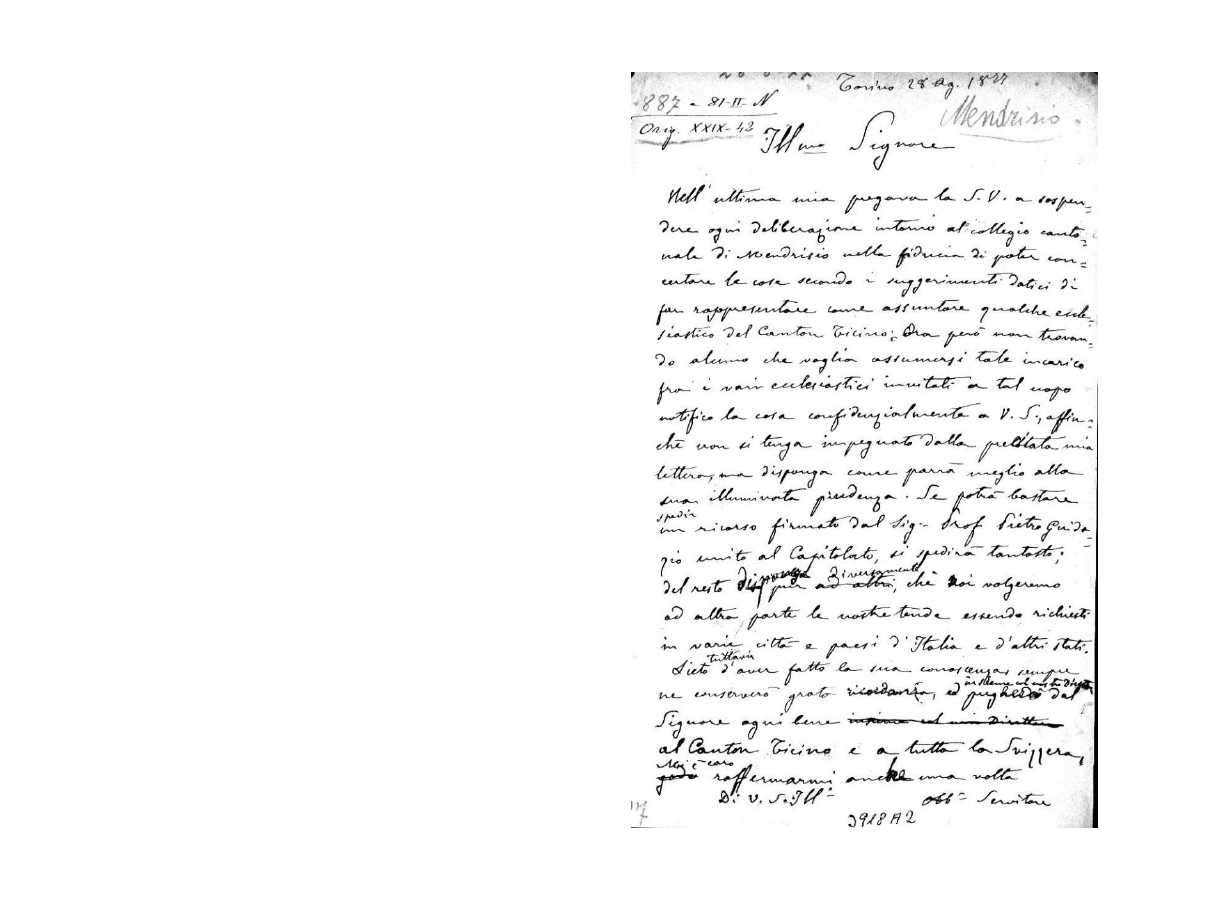 Torino 28 Ag. 1877
887 - 81-II- N
Mendrisio
Orig. XXIX- 42
Ill.mo Signore
Nell' ultima mia pregava la S. V. a sospen=
dere ogni deliberazione intorno al collegio canto=
nale di Mendrisio nella fiducia di poter con=
certare le cose secondo i suggerimenti datici di
far rappresentare come assuntore qualche eccle=
siastico del Canton Ticino; Ora però non trovan=
do alcuno che voglia assumersi tale incarico
fra i varii ecclesiastici invitati a tal uopo
notifico la cosa confidenzialmente a V. S., affin=
chè non si tenga impegnato dalla mia
lettera, ma disponga come parrà meglio alla
sua illuminata prudenza. Se potrà bastare
spedir
un ricorso firmato dal Sig. Prof Pietro Guida=
zio unito al Capitolato, si spedirà tantosto;
disponga diversamente
del resto pur ad altri, chè noi volgeremo
ad altra parte le nostre tende essendo richiesti
in varie città e paesi d'Italia e d'altri stati.
tuttavia
Lieto d'aver fatto la sua conoscenza, sempre
insieme al nostro
ne conserverò grato ricordanza, ed pregherò dal
Signore ogni bene insieme col mio Direttore
al Canton Ticino e a tutta la Svizzera,
Mi è caro
godo raffermarmi anche una volta
Di V. S. Ill.
Obb. Servitore
3918 A 2